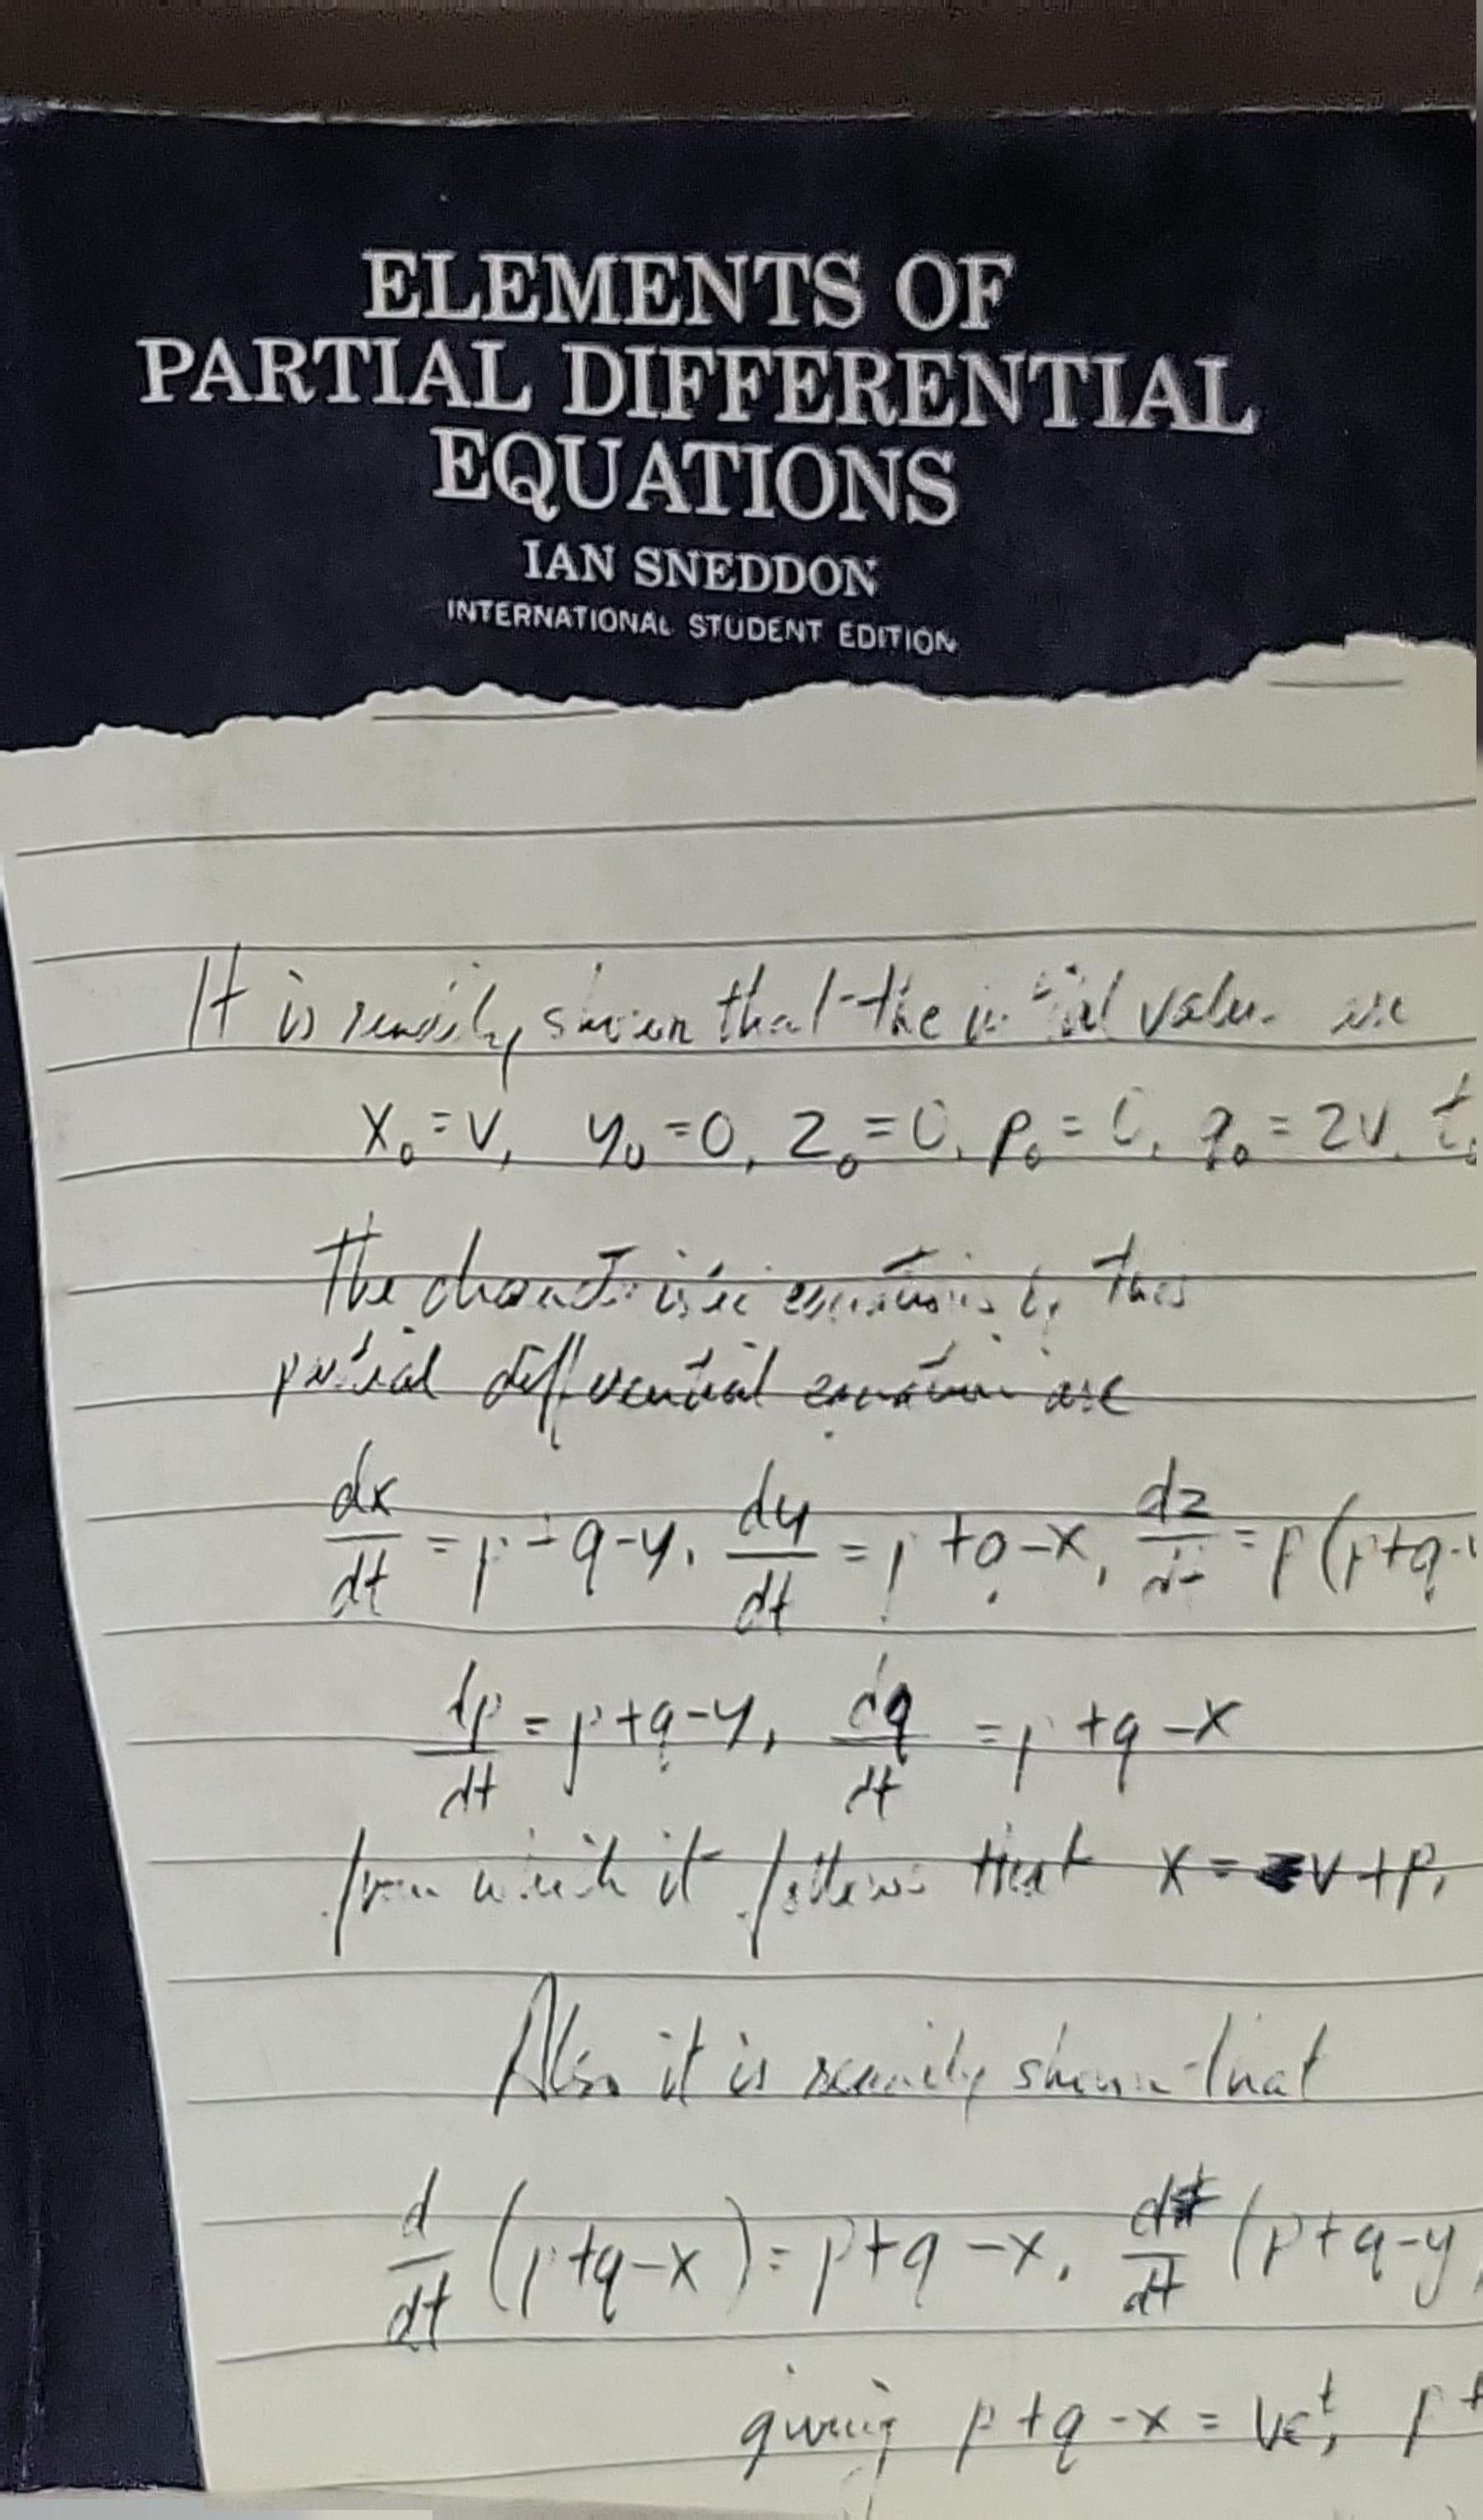 ELEMENTS OF
PARTIAL DIFFERENTIAL
EQUATIONS
IAN SNEDDON
INTERNATIONAL STUDENT EDITION
It is readily shown that the initial values are
x₀ = v, y₀ = 0, z₀ = 0, p₀ = 0, q₀ = 2v, t₀
The characteristic equations of this
partial differential equation are
dx/dt = p + q - y, dy/dt = p + q - x, dz/dt = p(p + q -
dp/dt = p + q - y, dq/dt = p + q - x
from which it follows that x = v + p,
Also it is readily shown that
d/dt (p + q - x) = p + q - x, d/dt (p + q - y
giving p + q - x = veᵗ, p +